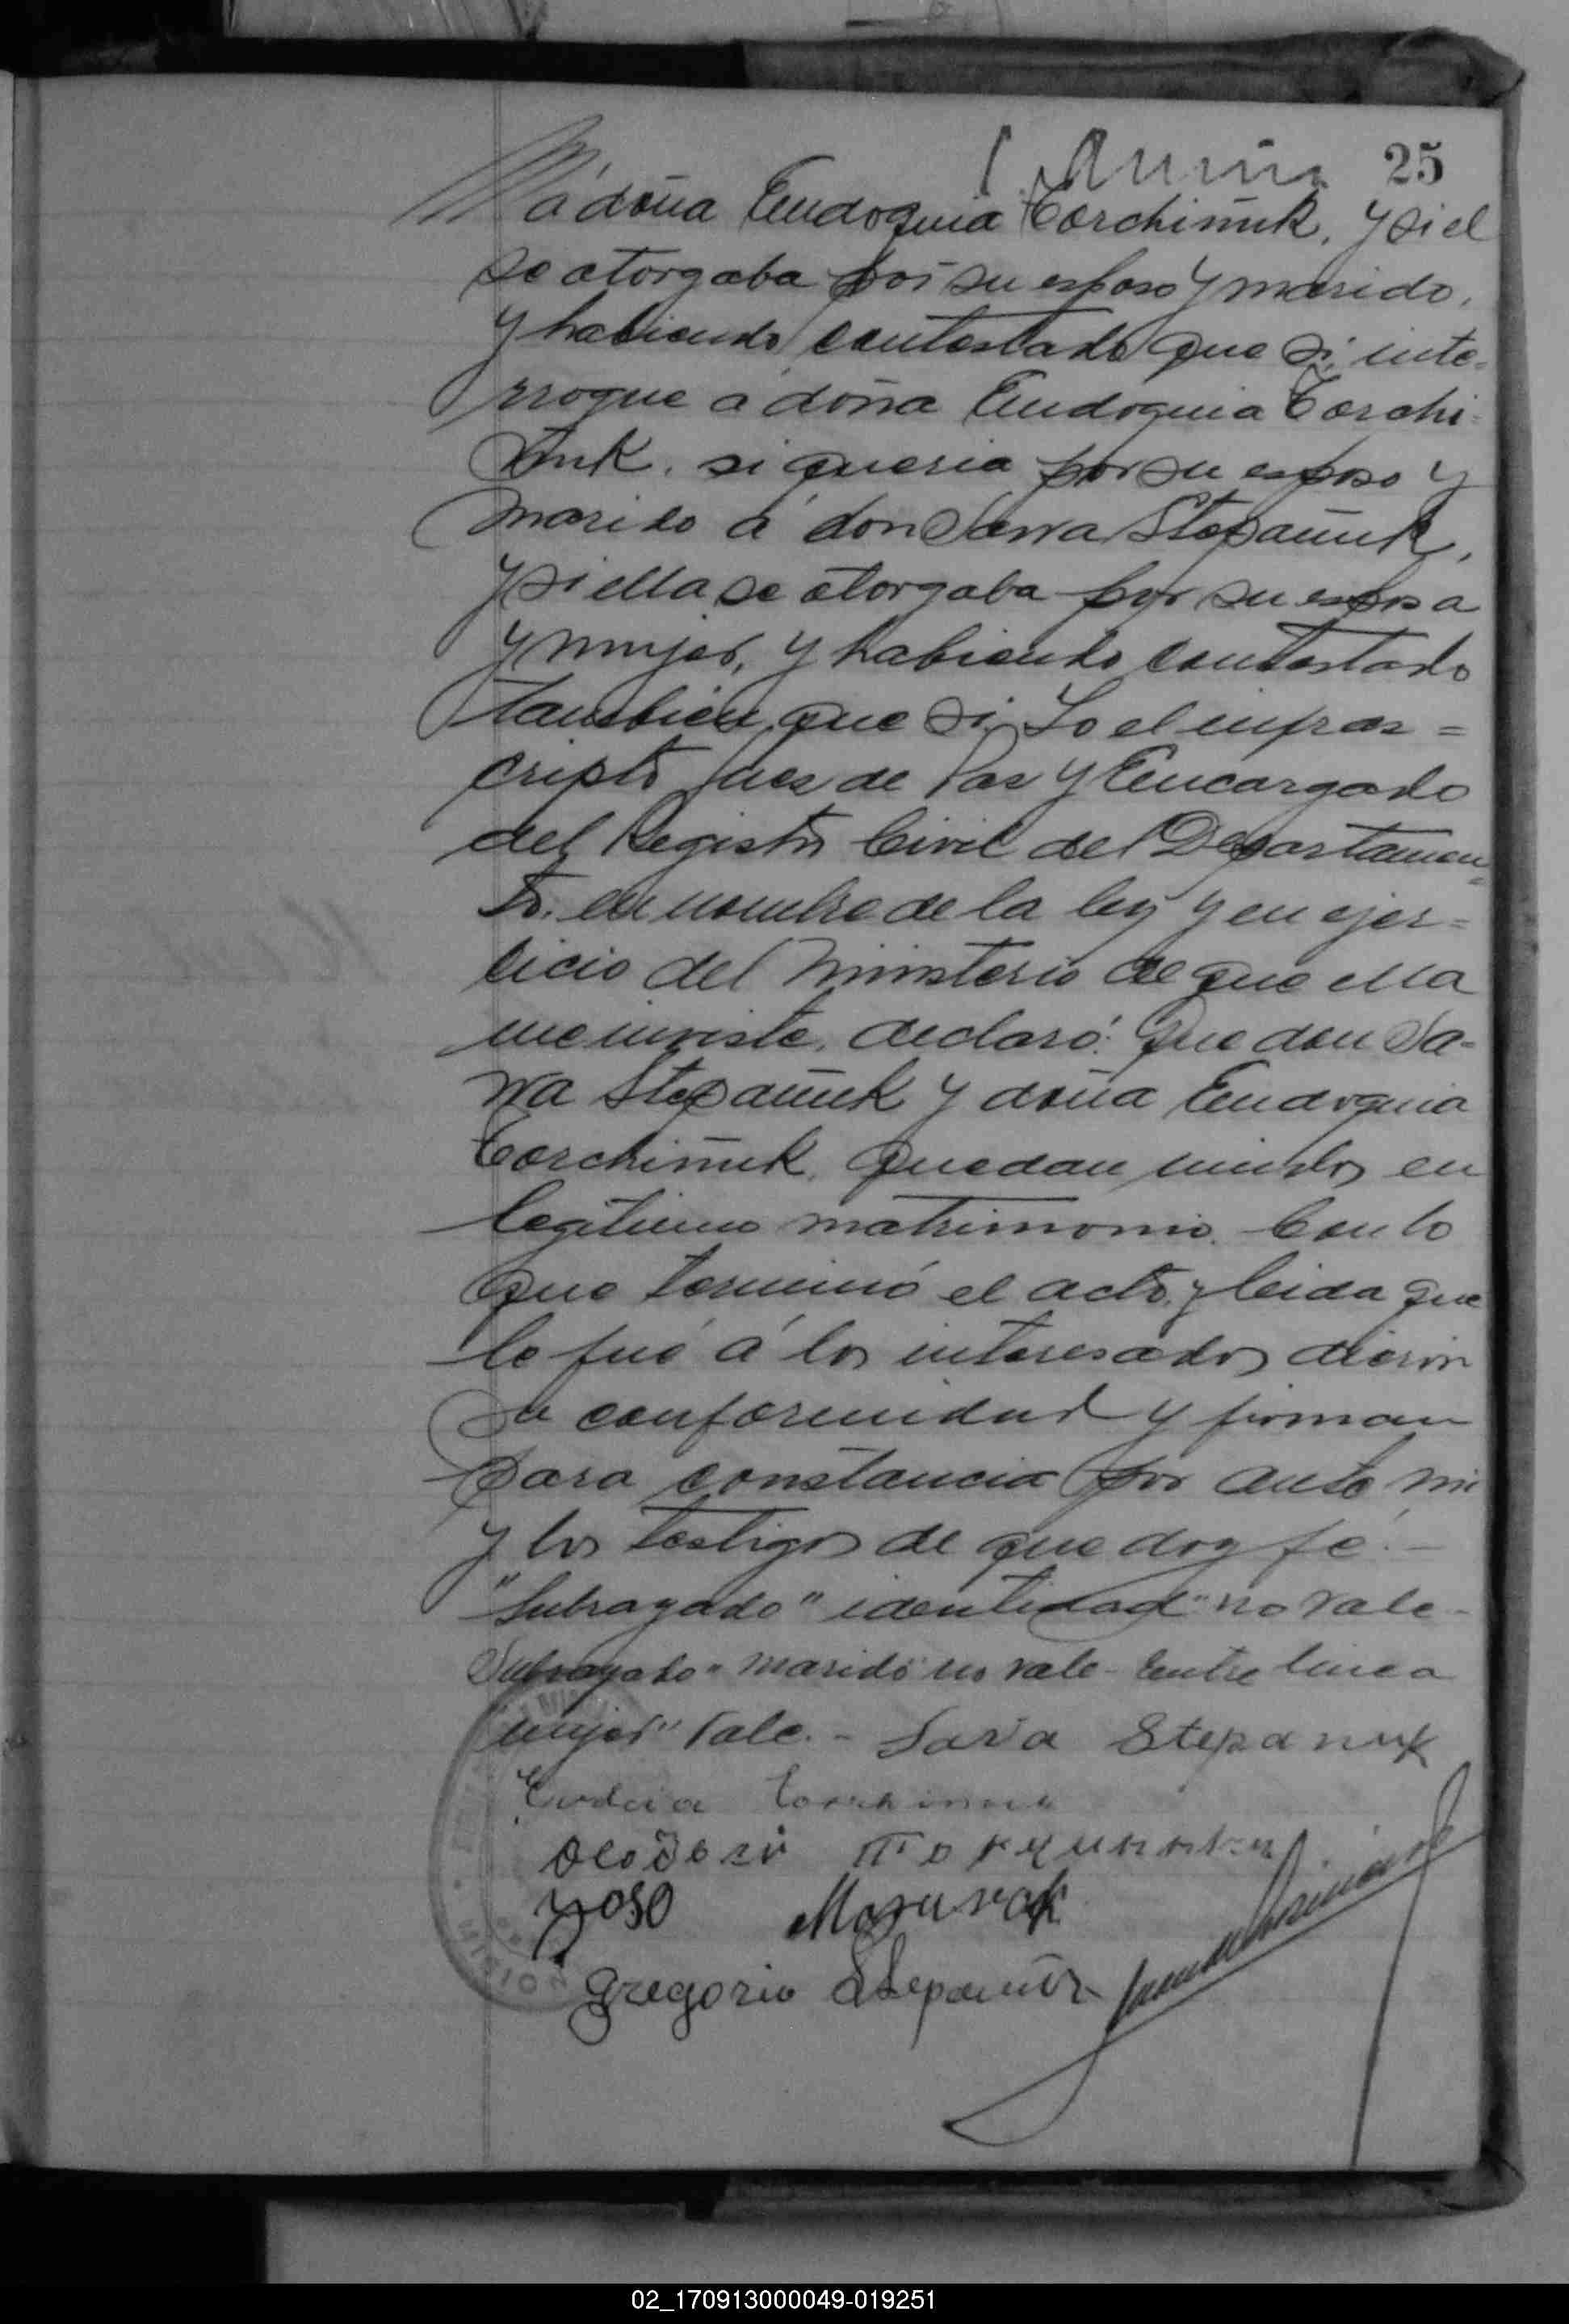 25
á doña Eudoquia Corchiñuk, y si el
se otorgaba por su esposo y marido,
y habiendo contestado que si, inte-
rrogue a doña Eudoquia Corchi-
ñuk, si queria por su esposo y
marido á don Sawa Stepañuk,
y si ella se otorgaba por su esposa
y mujer, y habiendo contestado
tambien que si, Yo el infras=
cripto Juez de Paz y Encargado
del Registro Civil del Departamen=
to, en nombre de la ley y en ejer=
cicio del ministerio de que ella
me inviste, declaró: Que don Sa-
wa Stepañuk y doña Eudoquia
Corchiñuk, quedan unidos en
legitimo matrimonio. Con lo
que terminó el acto, y leida que
le fué á los interesados dieron
su conformidad y firman
para constancia por ante mi
y los testigos de que doy fé.-
"Subrayado" identidad" no vale-
Subrayado "marido" no vale- Entre linea
"mujer" vale.- Sava Stepanuk
Gregorio Stepañuk
02_170913000049-019251